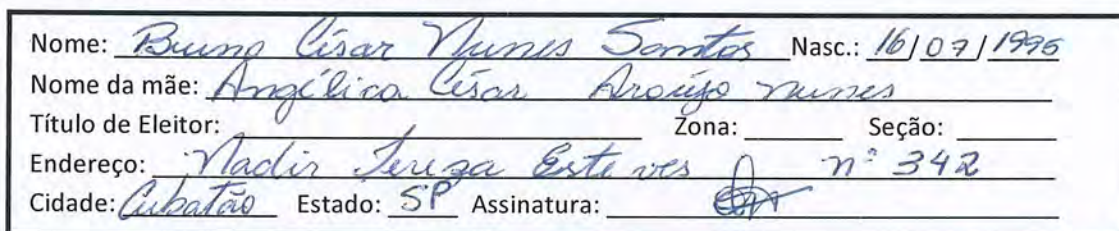 Nome: Bruno César Nunes Santos Nasc.: 16/07/1995
Nome da mãe: Angélica César Araújo nunes
Título de Eleitor: Zona: Seção:
Endereço: Nadir Tereza Esteves nº 342
Cidade: Cubatão Estado: SP Assinatura: